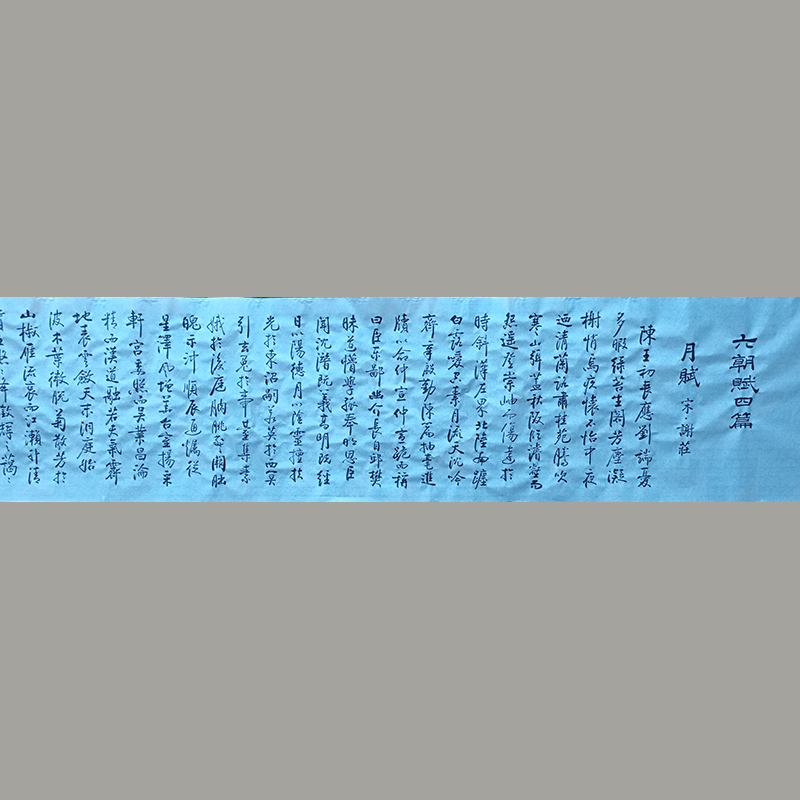 六朝賦四篇
月賦 宋·謝莊
陳王初喪應劉端憂
多暇綠苔生閣芳塵凝
榭悄焉疚懷不怡中夜
迺清蘭路肅桂苑騰吹
寒山弭蓋秋阪臨濬壑而
怨遙登崇岫而傷遠於
時斜漢左界北陸南躔
白露曖空素月流天沉吟
齊章殷勤陳篇抽毫進
牘以命仲宣仲宣跪而稱
曰臣東鄙幽介長自邱樊
昧道懵學孤奉明恩臣
聞沉潛既義高明既經
日以陽德月以陰靈擅扶
光於東沼嗣若英於西冥
引玄兔於帝臺集素
娥於後庭朒朓警闕朏
魄示沖順辰通燭從
星澤風增華台室揚采
軒宮委照而吳業昌淪
精而漢道融若夫氣霽
地表雲斂天末洞庭始
波木葉微脫菊散芳於
山椒雁流哀而江瀨升清